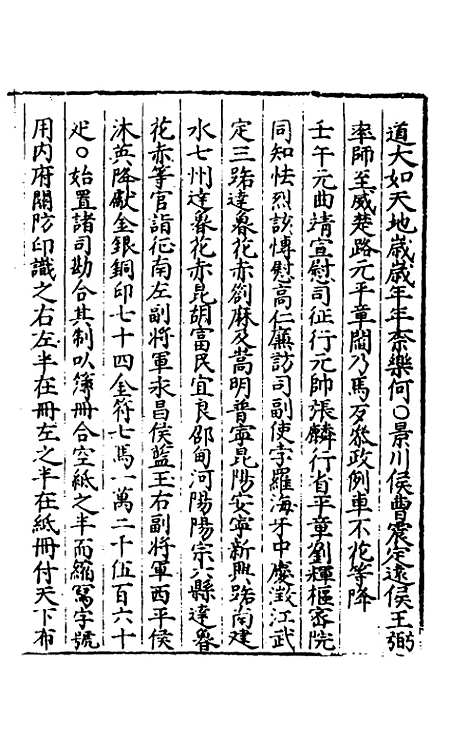 道大如天地歲歲年年柰樂何○景川侯曹震定遠侯王弼
率師至威楚路元平章閻乃馬歹參政例車不花等降
壬午元曲靖宣慰司征行元帥張麟行省平章劉輝樞密院
同知怯烈該愽慰高仁廉訪司副使孛羅海牙中慶澂江武
定三路達魯花赤劄麻及嵩明晋寧昆陽安寧新興路南建
水七州達魯花赤昆胡富民宜良邵甸河陽陽宗六縣達魯
花赤等官詣征南左副將軍永昌侯藍玉右副將軍西平侯
沐英降獻金銀銅印七十四金符七馬一萬二千伍百六十
疋○始置諸司勘合其制以簿冊合空紙之半而編寫字號
用内府關防印識之右左半在冊左之半在紙冊付天下布